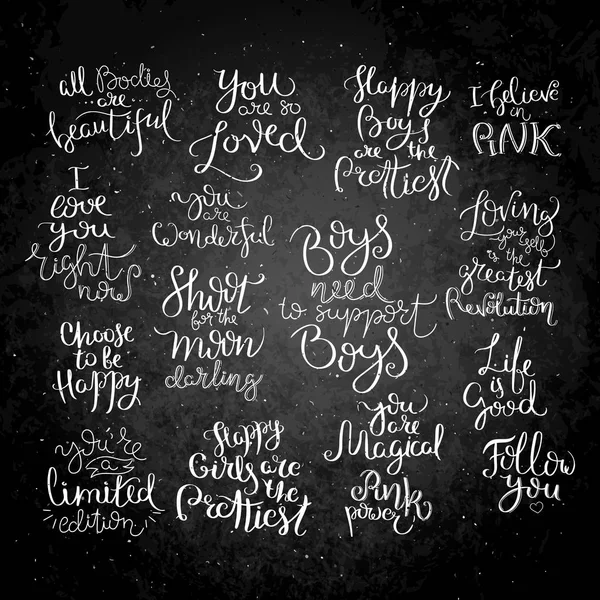 all Bodies
are
beautiful
You
are so
Loved
Happy
Boys
are the
Prettiest
I believe
in
PINK
I
love
you
right
now
you
are
Wonderful
Boys
need
to support
Boys
Loving
yourself
is the
greatest
Revolution
Shoot
for the
moon
darling
Choose
to be
Happy
Life
is
Good
you
are
Magical
you're
a
limited
edition
Happy
Girls are
the
Prettiest
Pink
power
Follow
you